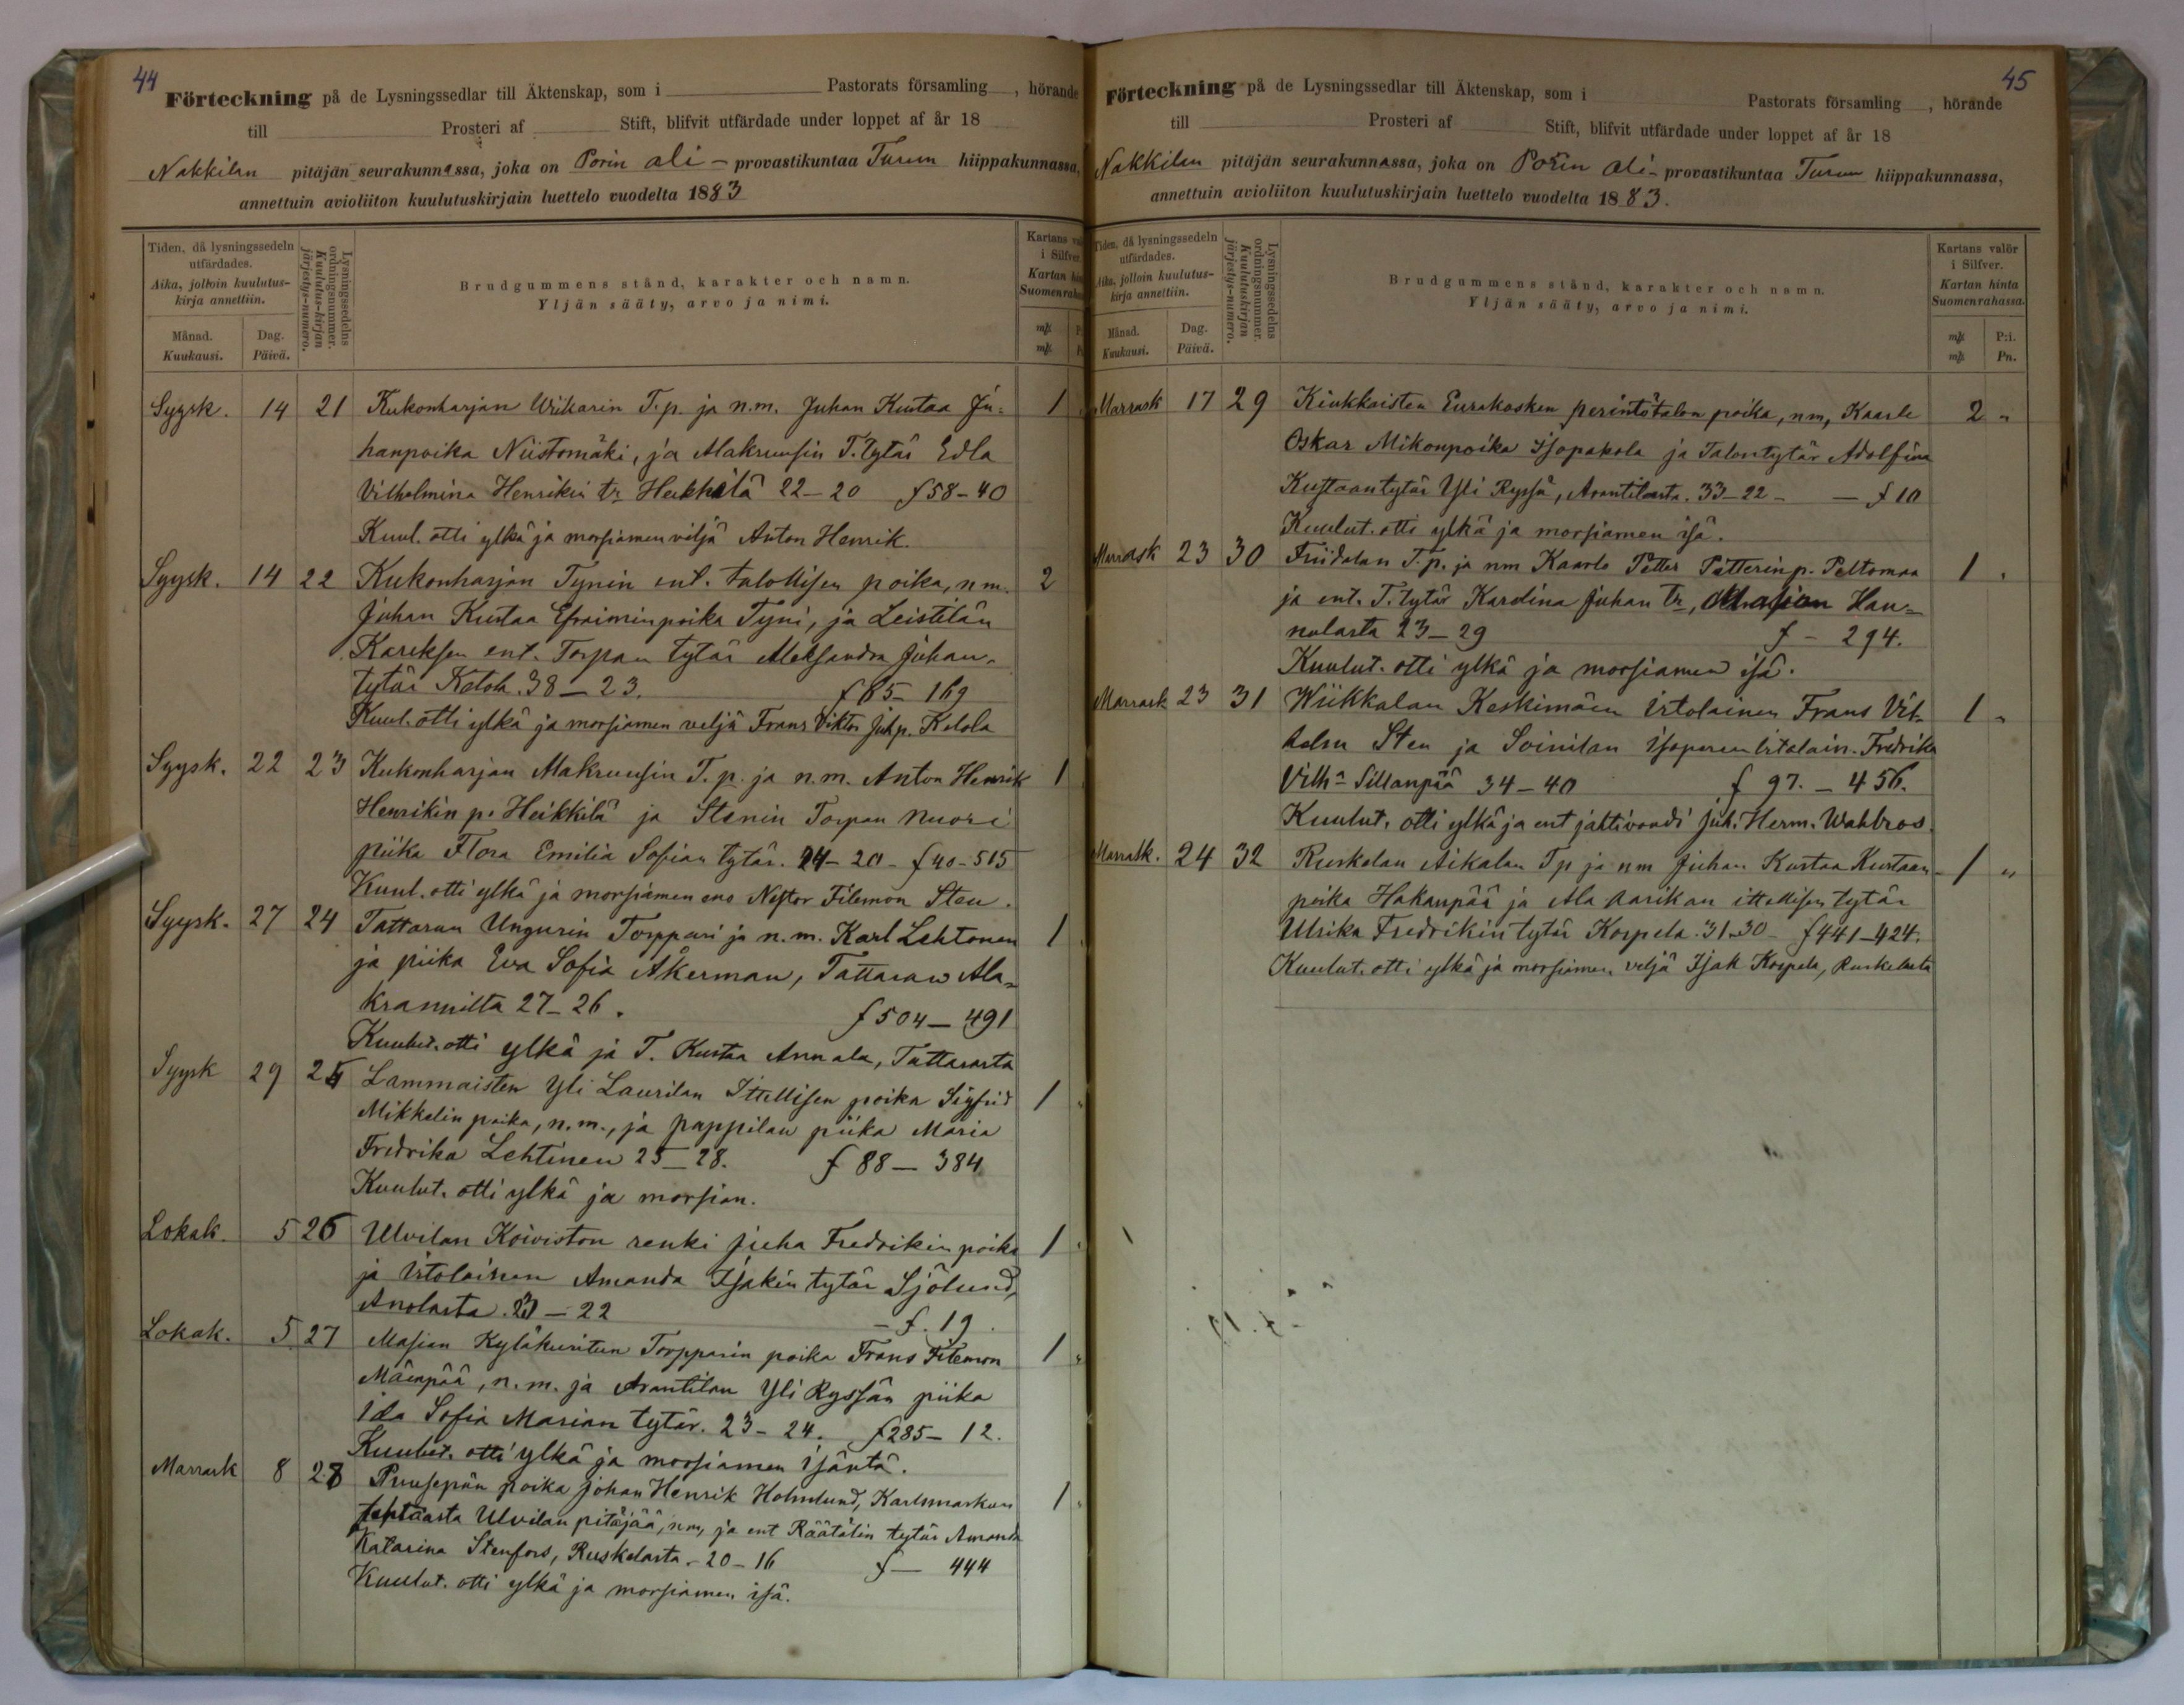 44
Förteckning på de Lysningssedlar till Äktenskap, som i Pastorats församling , hörande
till Prosteri af Stift, blifvit utfärdade under loppet af år 18
Nakkilan pitäjän seurakunnassa, joka on Porin ali- provastikuntaa Turun hiippakunnassa,
annettuin avioliiton kuulutuskirjain luettelo vuodelta 1883
Tiden, då lysningssedeln utfärdades.
Aika, jolloin kuulutus-kirja annettiin.
Månad. Kuukausi.
Dag. Päivä.
Lysningssedelns ordningsnummer.
Kuulutus-kirjan järjestys-numero.
Brudgummens stånd, karakter och namn.
Yljän sääty, arvo ja nimi.
Kartans
i Silfver.
Kartan
mk
mk
Syysk. 14 21 Kukonharjan Wrikarin T.p. ja n.m. Juhan Kustaa Ju= 1
hanpoika Niistomäki, ja Makruusin T. tytär Edla
Vilhelmina Henrikin tr Heikkilä 22-20 f 58-40
Kuul. otti ylkä ja morsiamen veljä Anton Henrik.
Syysk. 14 22 Kukonharjan Tynin ent. talollisen poika, n.m. 2
Juhan Kustaa Efraiminpoika Tyni, ja Leistilän
Kareksen ent. Torpan tytär Aleksandra Juhan-
tytär Ketola. 38-23. f 85-169
Kuul. otti ylkä ja morsiamen veljä Frans Viktor Juh.p. Ketola
Syysk. 22 23 Kukonharjan Makruusin T.p. ja n.m. Anton Henrik 1
Henrikin p. Heikkilä ja Stenin Torpan nuori
piika Flora Emilia Sofian tytär. 24-20- f 40-515
Kuul. otti ylkä ja morsiamen eno Nestor Filemon Sten.
Syysk. 27 24 Tattaran Ungurin Torppari ja n.m. Karl Lehtonen 1
ja piika Eva Sofia Åkerman, Tattaran Ala=
krannilta 27-26. f 504-491
Kuulut. otti ylkä ja T. Kustaa Annala, Tattarasta
Syysk 29 25 Lammaisten Yli Laurilan Ittellisen poika Sigfrid 1
Mikkelin poika, n.m., ja pappilan piika Maria
Fredrika Lehtinen 25-28. f 88-384
Kuulut. otti ylkä ja morsian.
Lokak. 5 26 Ulvilan Koiviston renki Juha Fredrikin poika 1
ja Irtolainen Amanda Isakin tytär Sjölund,
Anolasta. 23-22 - f. 19.
Lokak. 5 27 Masian Kyläkuritun Torpparin poika Frans Filemon 1
Mäenpää, n.m. ja Arantilan Yli Ryssän piika
Ida Sofia Marian tytär. 23-24. f 285-12.
Kuulut. otti ylkä ja morsiamen isäntä.
Marrask 8 28 Puusepän poika Johan Henrik Holmlund, Karlsmarkun 1
tehtaasta Ulvilan pitäjää, nm, ja ent Räätälin tytär Amanda
Katarina Stenfors, Ruskelasta. 20-16 f — 444
Kuulut. otti ylkä ja morsiamen isä.
45
Förteckning på de Lysningssedlar till Äktenskap, som i Pastorats församling , hörande
till Prosteri af Stift, blifvit utfärdade under loppet af år 18
Nakkilan pitäjän seurakunnassa, joka on Porin ali- provastikuntaa Turun hiippakunnassa,
annettuin avioliiton kuulutuskirjain luettelo vuodelta 1883.
Tiden, då lysningssedeln utfärdades.
Aika, jolloin kuulutus-kirja annettiin.
Månad. Kuukausi.
Dag. Päivä.
Lysningssedelns ordningsnummer.
Kuulutuskirjan järjestys-numero.
Brudgummens stånd, karakter och namn.
Yljän sääty, arvo ja nimi.
Kartans valör
i Silfver.
Kartan hinta
Suomenrahassa.
mk P:i.
mk Pn.
Marrask 17 29 Kiukkaisten Eurakosken perintötalon poika, nm, Kaarle 2 "
Oskar Mikonpoika Isopakola ja Talontytär Adolfina
Kustaantytär Yli Ryssä, Arantilasta. 33-22- — f 10
Kuulut. otti ylkä ja morsiamen isä.
Marrask 23 30 Friidalan T.p. ja nm Kaarlo Petter Petterin p. Peltomaa 1
ja ent. T. tytär Karolina Juhan tr, Masian Han-
nulasta 23-29 f - 294.
Kuulut. otti ylkä ja morsiamen isä.
Marrask 23 31 Wiikkalan Keskimäen Irtolainen Frans Vil- 1 "
helm Sten ja Soinilan Isoperen Irtolain. Fredrika
Vilh:a Sillanpää 34-40 f 97. - 456.
Kuulut. otti ylkä ja ent jahtivouti Juh. Herm. Wahlroos.
Marrask. 24 32 Ruskelan Aikalan Tp ja nm Juhan Kustaa Kustaan- 1 "
poika Hakanpää ja Ala Aarikan ittellisen tytär
Ulrika Fredrikin tytär Korpela. 31-30- f 441-424.
Kuulut. otti ylkä ja morsiamen veljä Isak Korpela, Ruskelasta